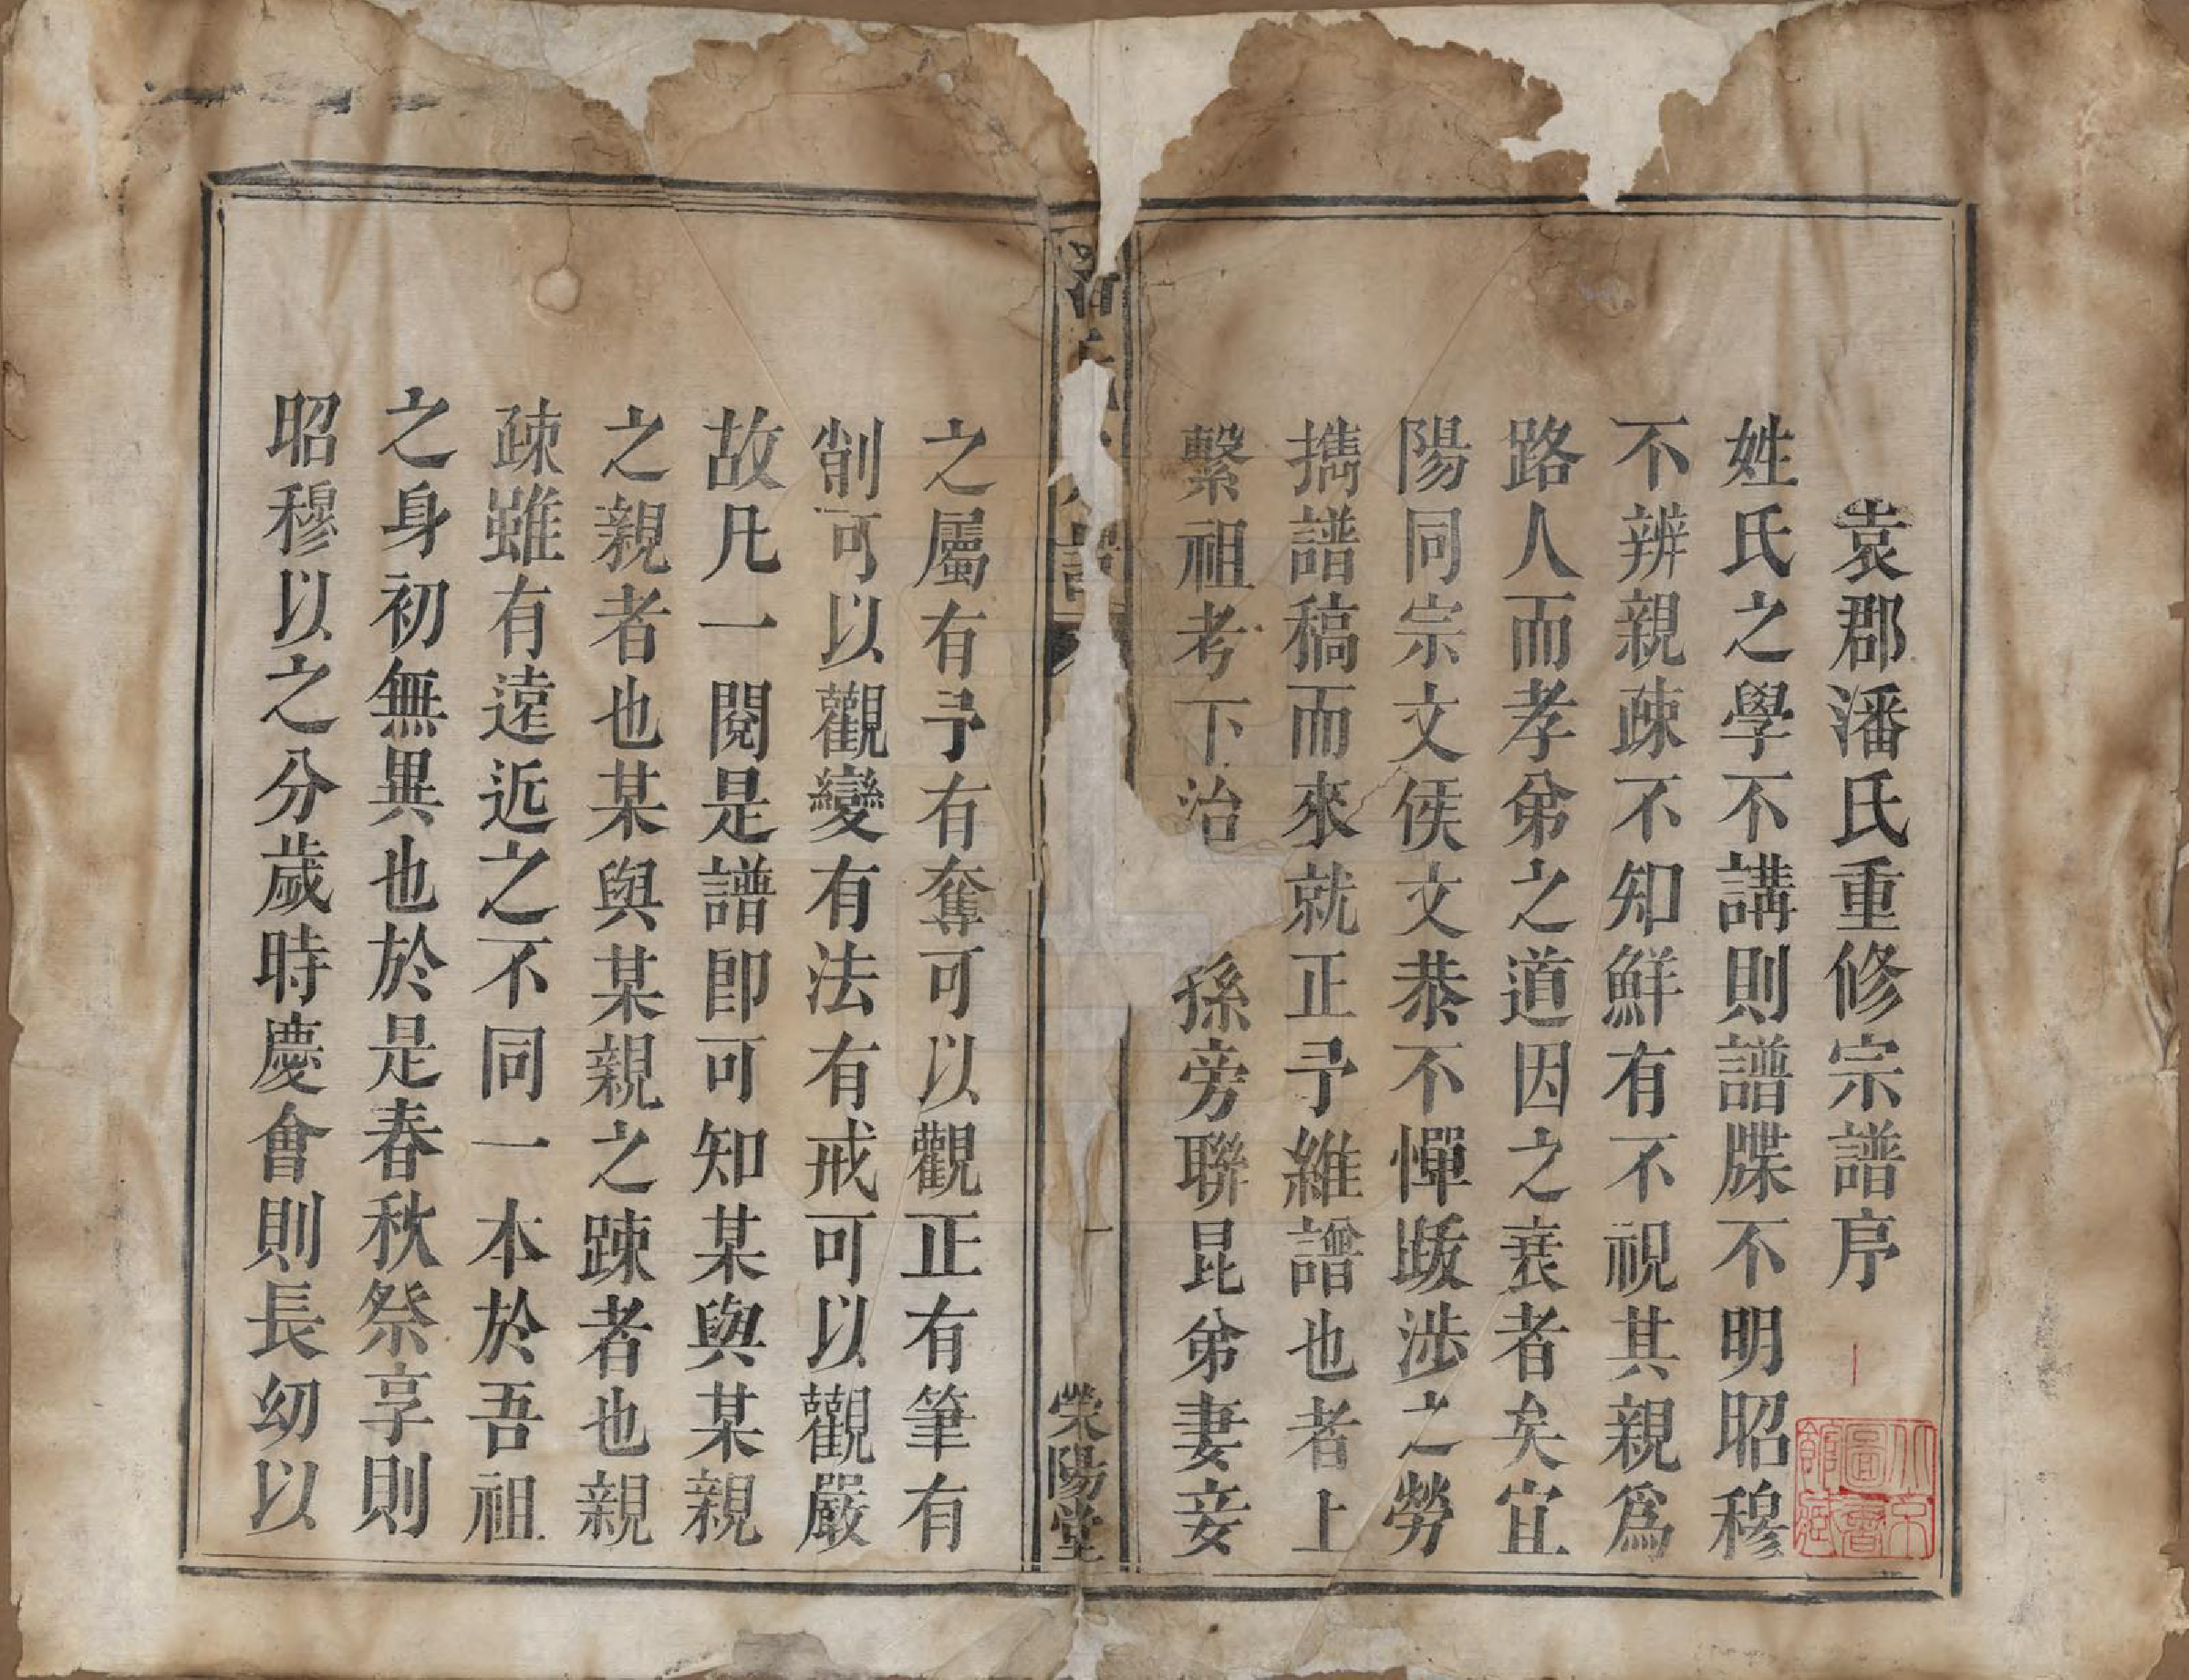 袁郡潘氏重修宗譜序
姓氏之學不講則譜牒不明昭穆
不辨親疎不知鮮有不視其親爲
路人而孝弟之道因之衰者矣宜
陽同宗文侯文恭不憚跋涉之勞
擕譜稿而來就正予維譜也者上
繫祖考下治 孫旁聯昆弟妻妾
譜
一
榮陽堂
之屬有予有奪可以觀正有筆有
削可以觀變有法有戒可以觀嚴
故凡一閱是譜卽可知某與某親
之親者也某與某親之踈者也親
疎雖有遠近之不同一本於吾祖
之身初無異也於是春秋祭享則
昭穆以之分歲時慶會則長幼以
北京圖書館藏